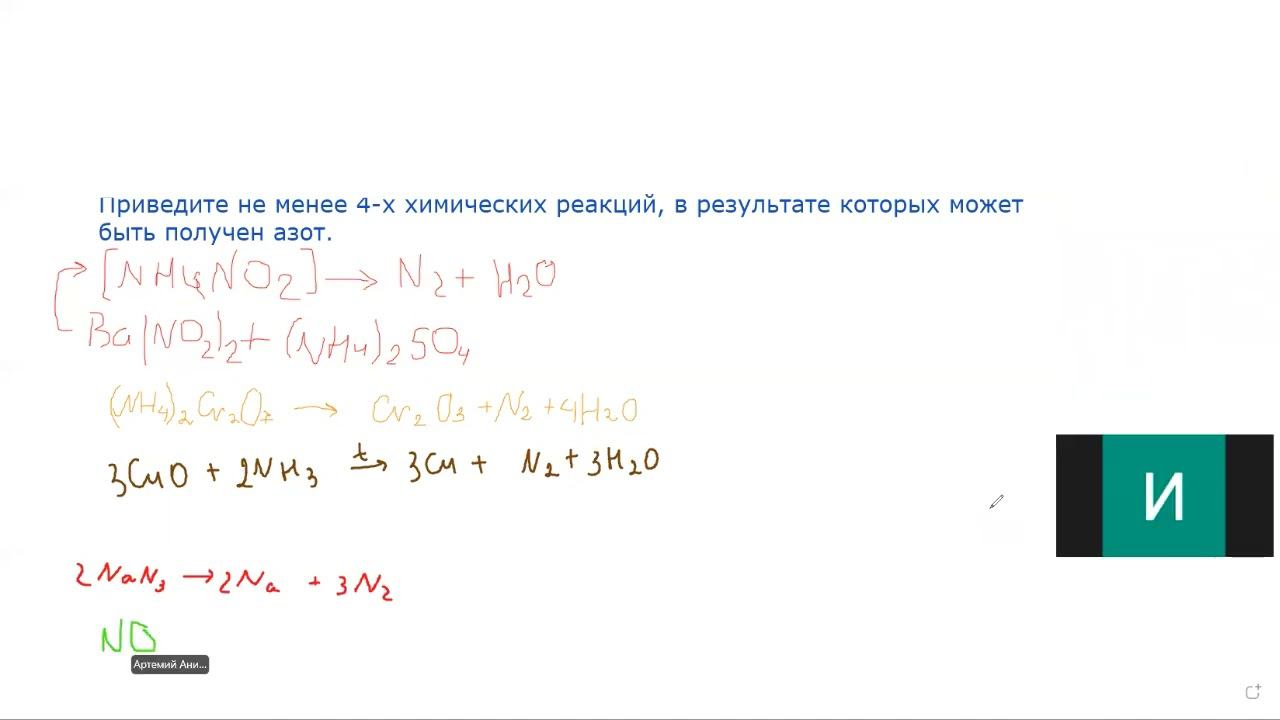 Приведите не менее 4-х химических реакций, в результате которых может
быть получен азот.
[NH4NO2] → N2 + H2O
Ba(NO2)2 + (NH4)2SO4
(NH4)2Cr2O7 → Cr2O3 + N2 + 4H2O
3CuO + 2NH3 t→ 3Cu + N2 + 3H2O
И
2NaN3 → 2Na + 3N2
NO
Артемий Ани...